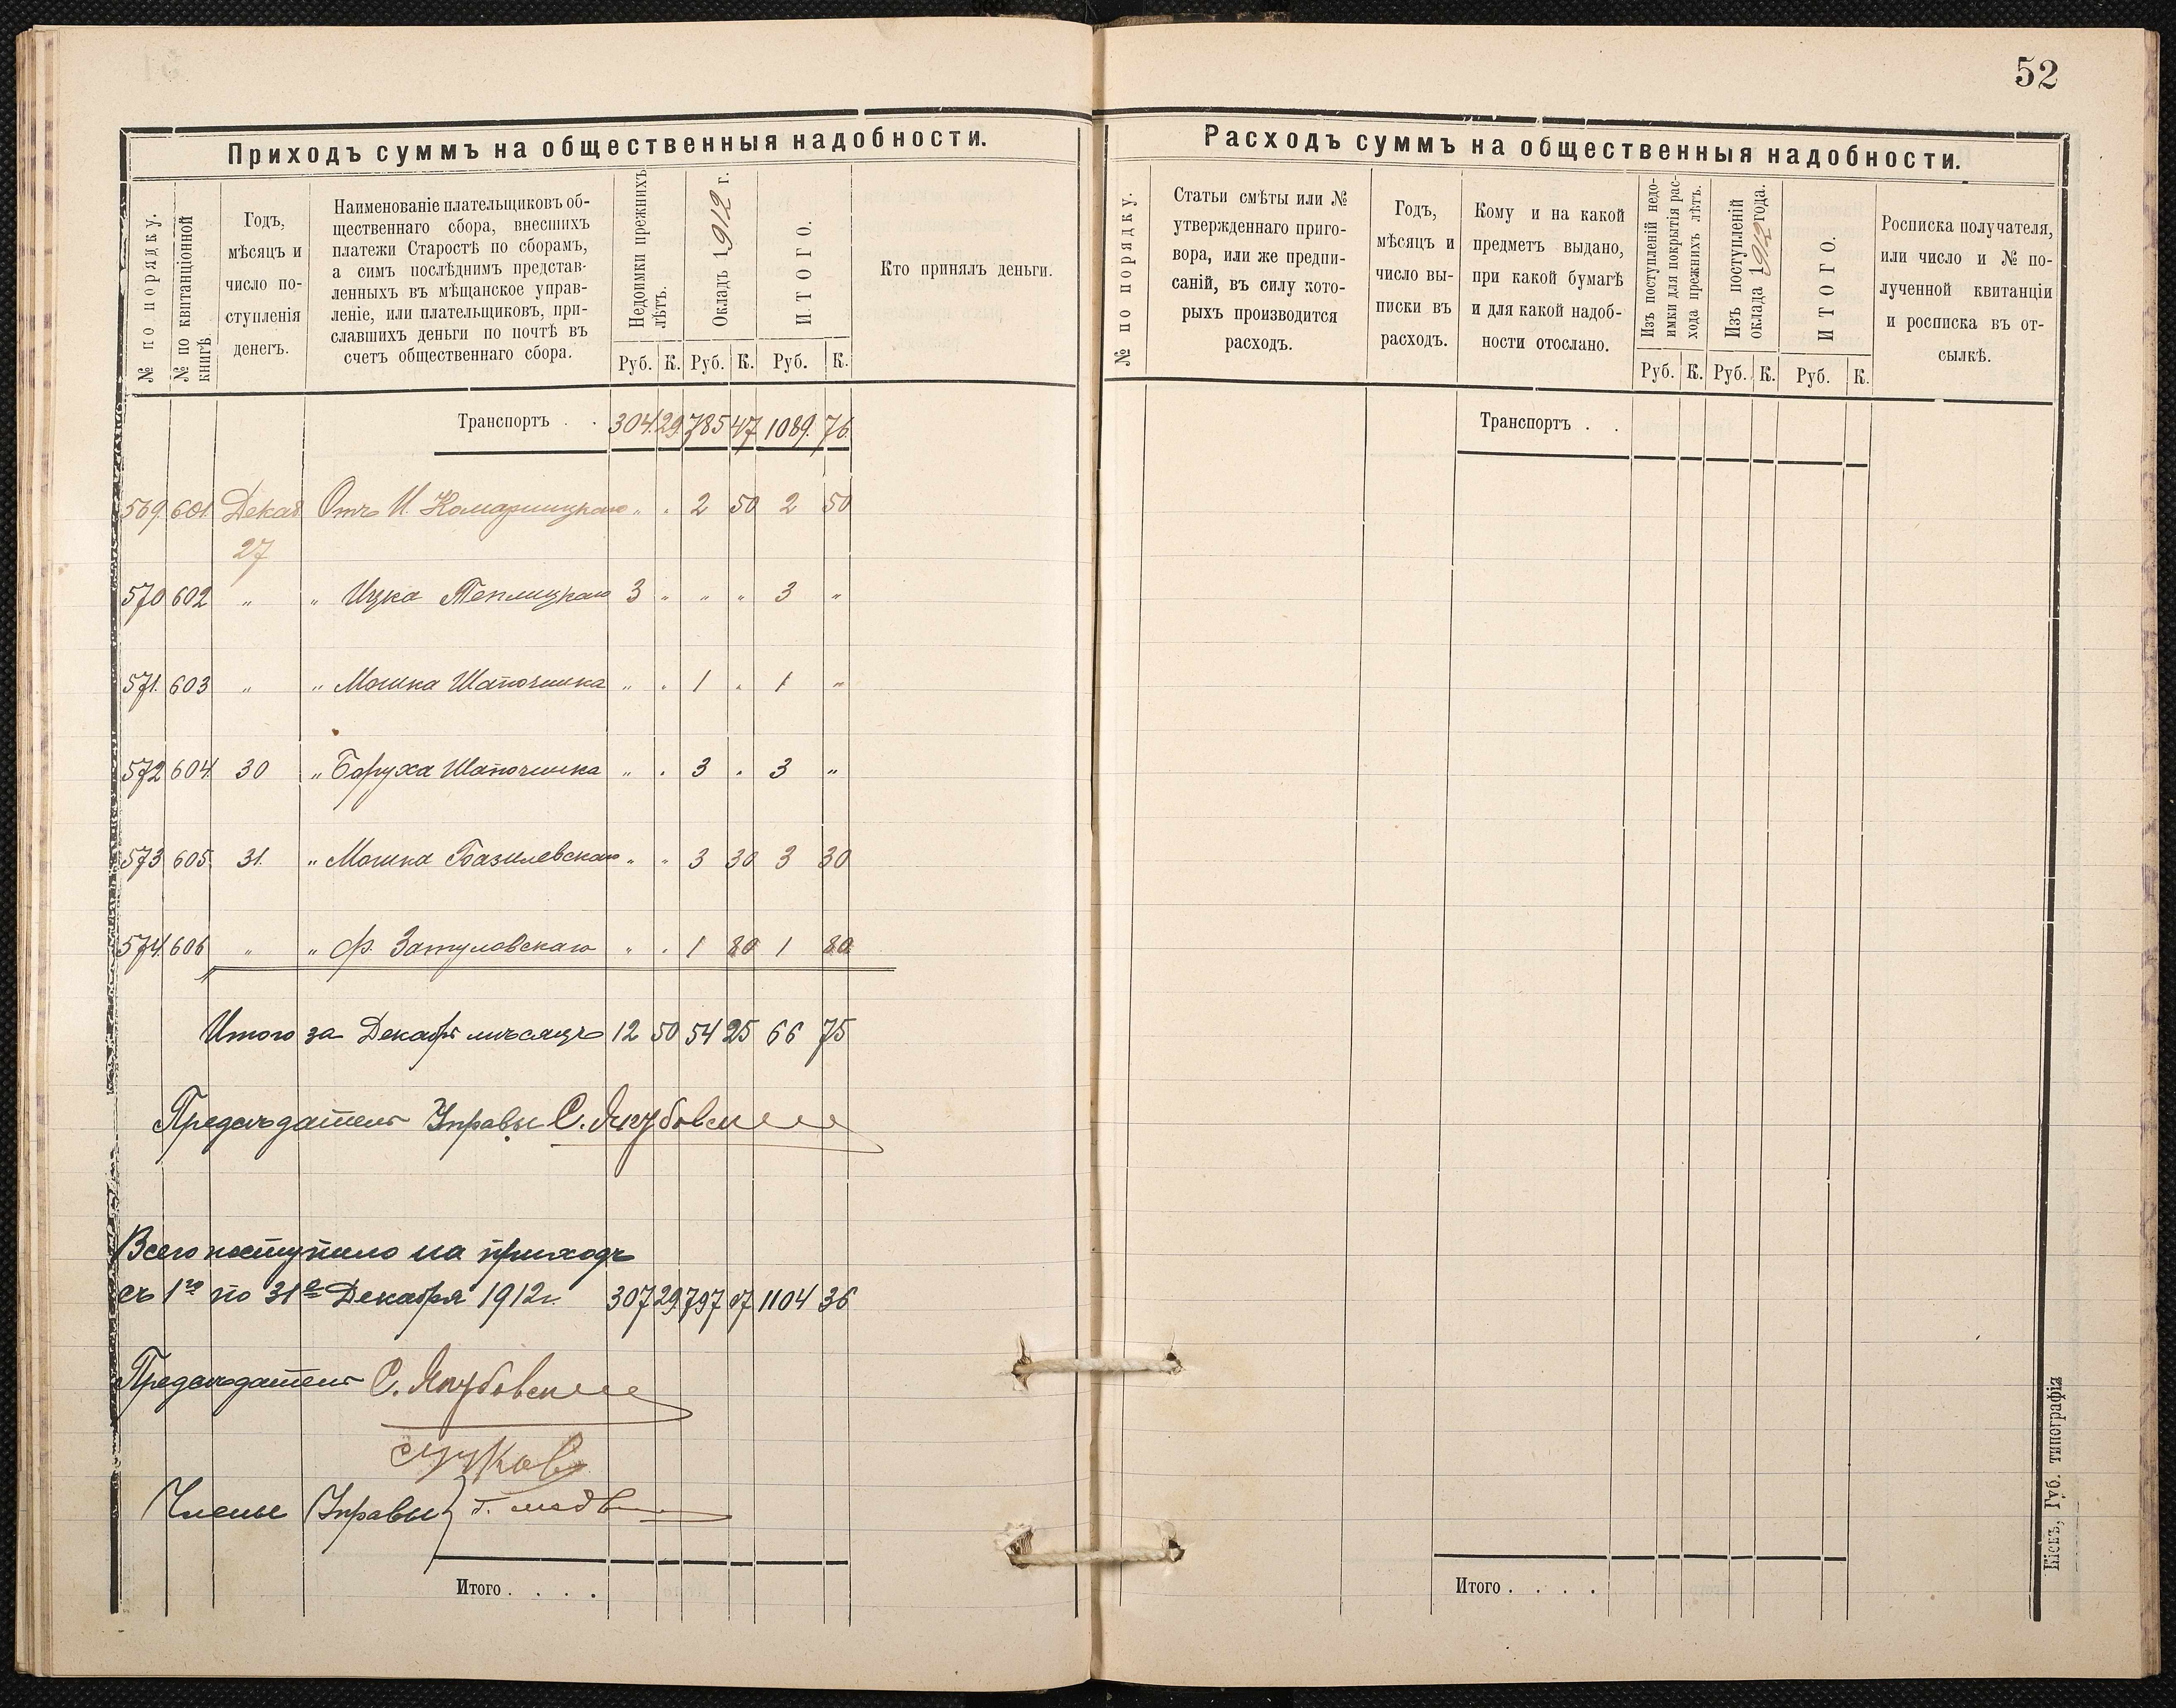 52
Приходъ суммъ на общественныя надобности.
№ по порядку.
№ по квитанціонной
книгѣ
Годъ,
мѣсяцъ и
число по-
ступленія
денегъ.
Наименованіе плательщиковъ об-
щественнаго сбора, внесшихъ
платежи Старостѣ по сборамъ,
а симъ послѣднимъ представ-
ленныхъ въ мѣщанское управ-
леніе, или плательщиковъ, при-
славшихъ деньги по почтѣ въ
счетъ общественнаго сбора.
Недоимки прежнихъ
лѣтъ.
Окладъ 1912 г.
ИТОГО.
Кто принялъ деньги.
Руб. К. Руб. К. Руб. К.
Транспортъ . . 304 29 785 47 1089 76
569 601 Декаб Отъ И. Комарницкаго " " 2 50 2 50
27
570 602 " " Ицка Теплицкаго 3 " " " 3 "
571 603 " " Мошка Шапочника " " 1 " 1 "
572 604 30 " Боруха Шапочника " " 3 " 3 "
573 605 31 " Мошка Базилевскаго " " 3 30 3 30
574 606 " " Ф. Затуловскаго " " 1 80 1 80
Итого за Декабрь мѣсяцъ 12 50 54 25 66 75
Предсѣдатель Управы С. Якубовскій
Всего поступило на приходъ
съ 1го по 31е Декабря 1912 г. 307 29 797 07 1104 36
Предсѣдатель С. Якубовскій
Члены Управы
Итого . . . .
Расходъ суммъ на общественныя надобности.
№ по порядку.
Статьи смѣты или №
утвержденнаго приго-
вора, или же предпи-
саній, въ силу кото-
рыхъ производится
расходъ.
Годъ,
мѣсяцъ и
число вы-
писки въ
расходъ.
Кому и на какой
предметъ выдано,
при какой бумагѣ
и для какой надоб-
ности отослано.
Изъ поступленій недо-
имки для покрытія рас-
хода прежнихъ лѣтъ.
Изъ поступленій
оклада 1912 года.
ИТОГО.
Росписка получателя,
или число и № по-
лученной квитанціи
и росписка въ от-
сылкѣ.
Руб. К. Руб. К. Руб. К.
Транспортъ . .
Итого . . . .
Губ. типографія